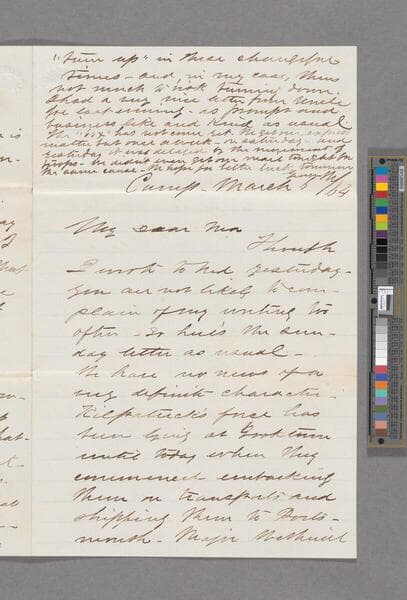 "turn up" in these changeful
times - and, in my case, there's
not much to risk turning down.
I had a very nice letter from Uncle
last evening - as prompt and
business like and kind as usual
The "box" has not come yet. We get our express
matter but once a week - on Saturday - and
yesterday it was delayed by the movement of
troops. We didn't even get our mail tonight for
the same cause. We hope for better luck tomorrow
Camp. March 6 /64
My dear Ma
Though
I wrote to Ned yesterday -
you are not likely to com-
plain of my writing too
often - so here's the Sun-
day letter as usual -
We have no news of a
very definite character.
Kilpatrick's force has
been lying at Yorktown
until today when they
commenced embarking
them on transports and
shipping them to Ports-
mouth - Major Wetherill